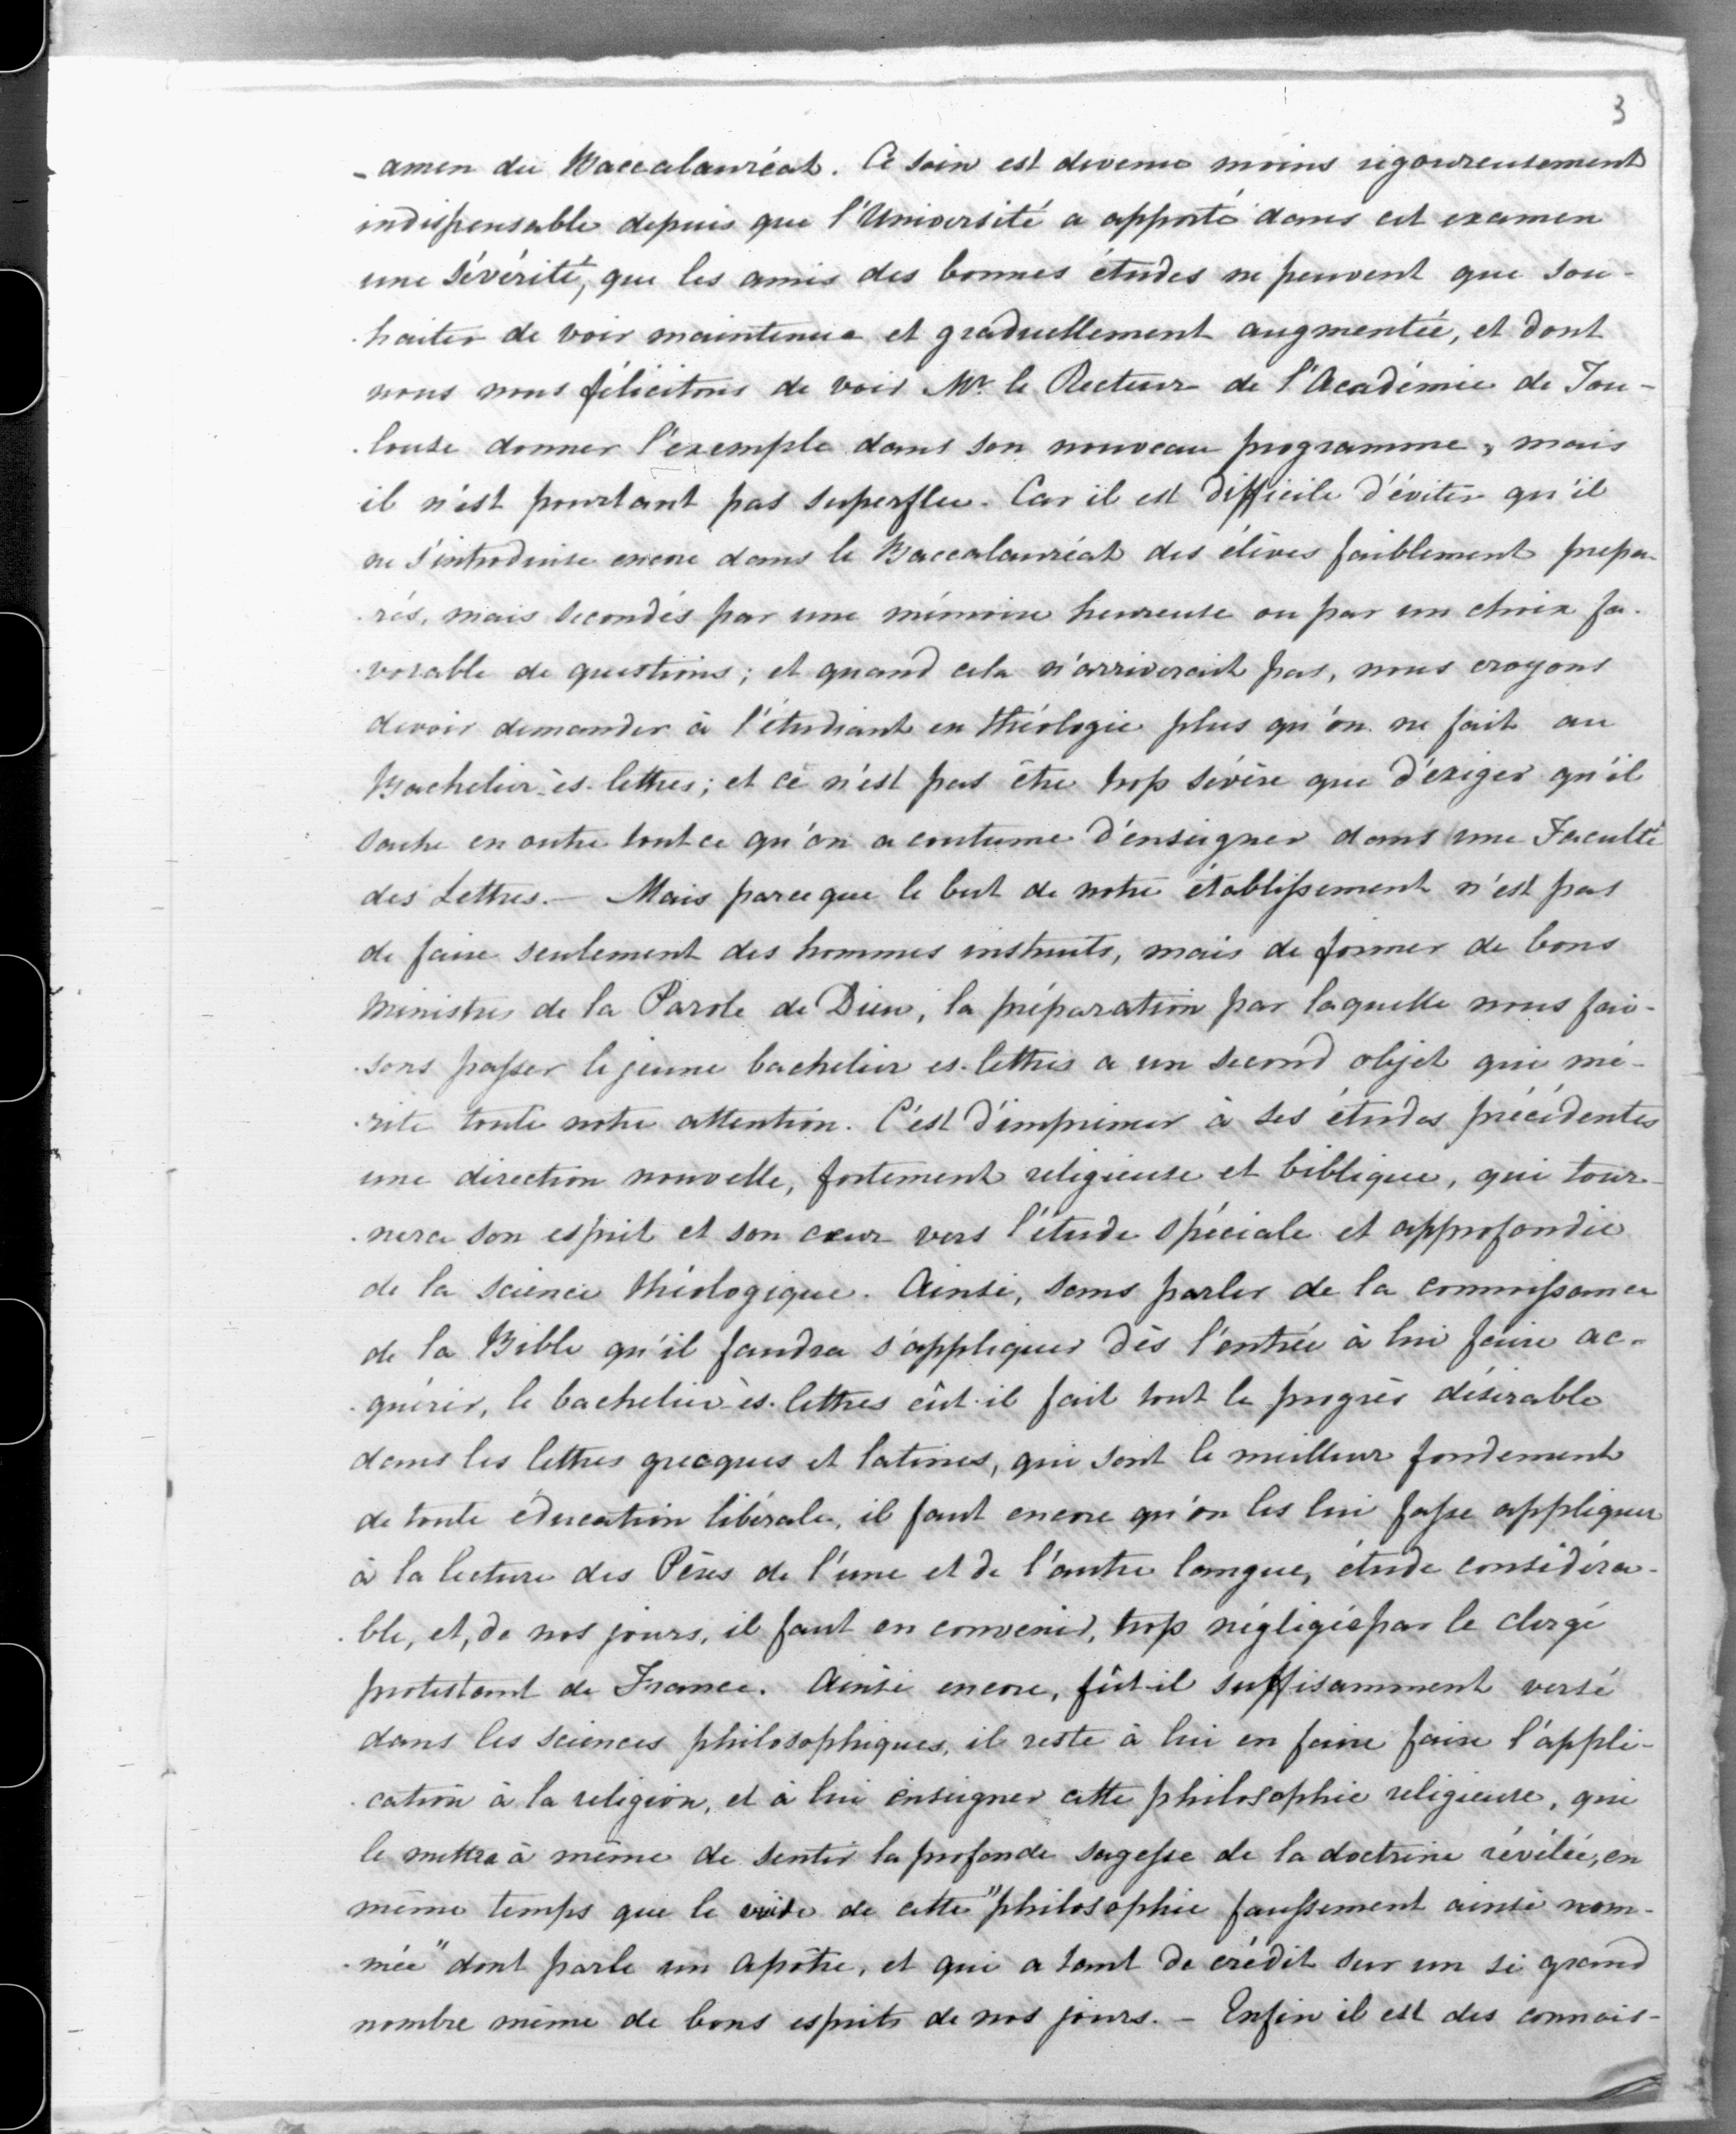 3
-amen du Baccalauréat. Ce soin est devenu moins rigoureusement
indispensable depuis que l'Université a apporté dans cet examen
une sévérité, que les amis des bonnes études ne peuvent que sou-
-haiter de voir maintenue et graduellement augmentée, et dont
nous nous félicitons de voir Mr. le Recteur de l'Académie de Tou-
-louse donner l'exemple dans son nouveau programme, mais
il n'est pourtant pas superflu. Car il est difficile d'éviter qu'il
ne s'introduise encore dans le Baccalauréat des élèves faiblement prépa-
-rés, mais secondés par une mémoire heureuse ou par un choix fa-
-vorable de questions; et quand cela n'arriverait pas, nous croyons
devoir demander à l'étudiant en théologie plus qu'on ne fait au
Bachelier-ès-lettres; et ce n'est pas être trop sévère que d'exiger qu'il
sache en outre tout ce qu'on a coutume d'enseigner dans une Faculté
des Lettres. — Mais parceque le but de notre établissement n'est pas
de faire seulement des hommes instruits, mais de former de bons
Ministres de la Parole de Dieu, la préparation par laquelle nous fai-
-sons passer le jeune bachelier es-lettres a un second objet qui mé-
-rite toute notre attention. C'est d'imprimer à ses études précédentes
une direction nouvelle, fortement religieuse et biblique, qui tour-
-nera son esprit et son cœur vers l'étude spéciale et approfondie
de la science théologique. Ainsi, sans parler de la connoissance
de la Bible qu'il faudra s'appliquer dès l'entrée à lui faire ac-
-quérir, le bachelier-ès-lettres eût-il fait tout le progrès désirable
dans les lettres grecques et latines, qui sont le meilleur fondement
de toute éducation libérale, il faut encore qu'on les lui fasse appliquer
à la lecture des Pères de l'une et de l'autre langue, étude considéra-
-ble, et, de nos jours, il faut en convenir, trop négligée par le clergé
protestant de France. Ainsi encore, fût-il suffisamment versé
dans les sciences philosophiques, il reste à lui en faire faire l'appli-
-cation à la religion, et à lui enseigner cette philosophie religieuse, qui
le mettra à même de sentir la profonde sagesse de la doctrine révélée, en
même temps que le vuide de cette "philosophie faussement ainsi nom-
-mée" dont parle un Apôtre, et qui a tant de crédit sur un si grand
nombre même de bons esprits de nos jours. - Enfin il est des connais-